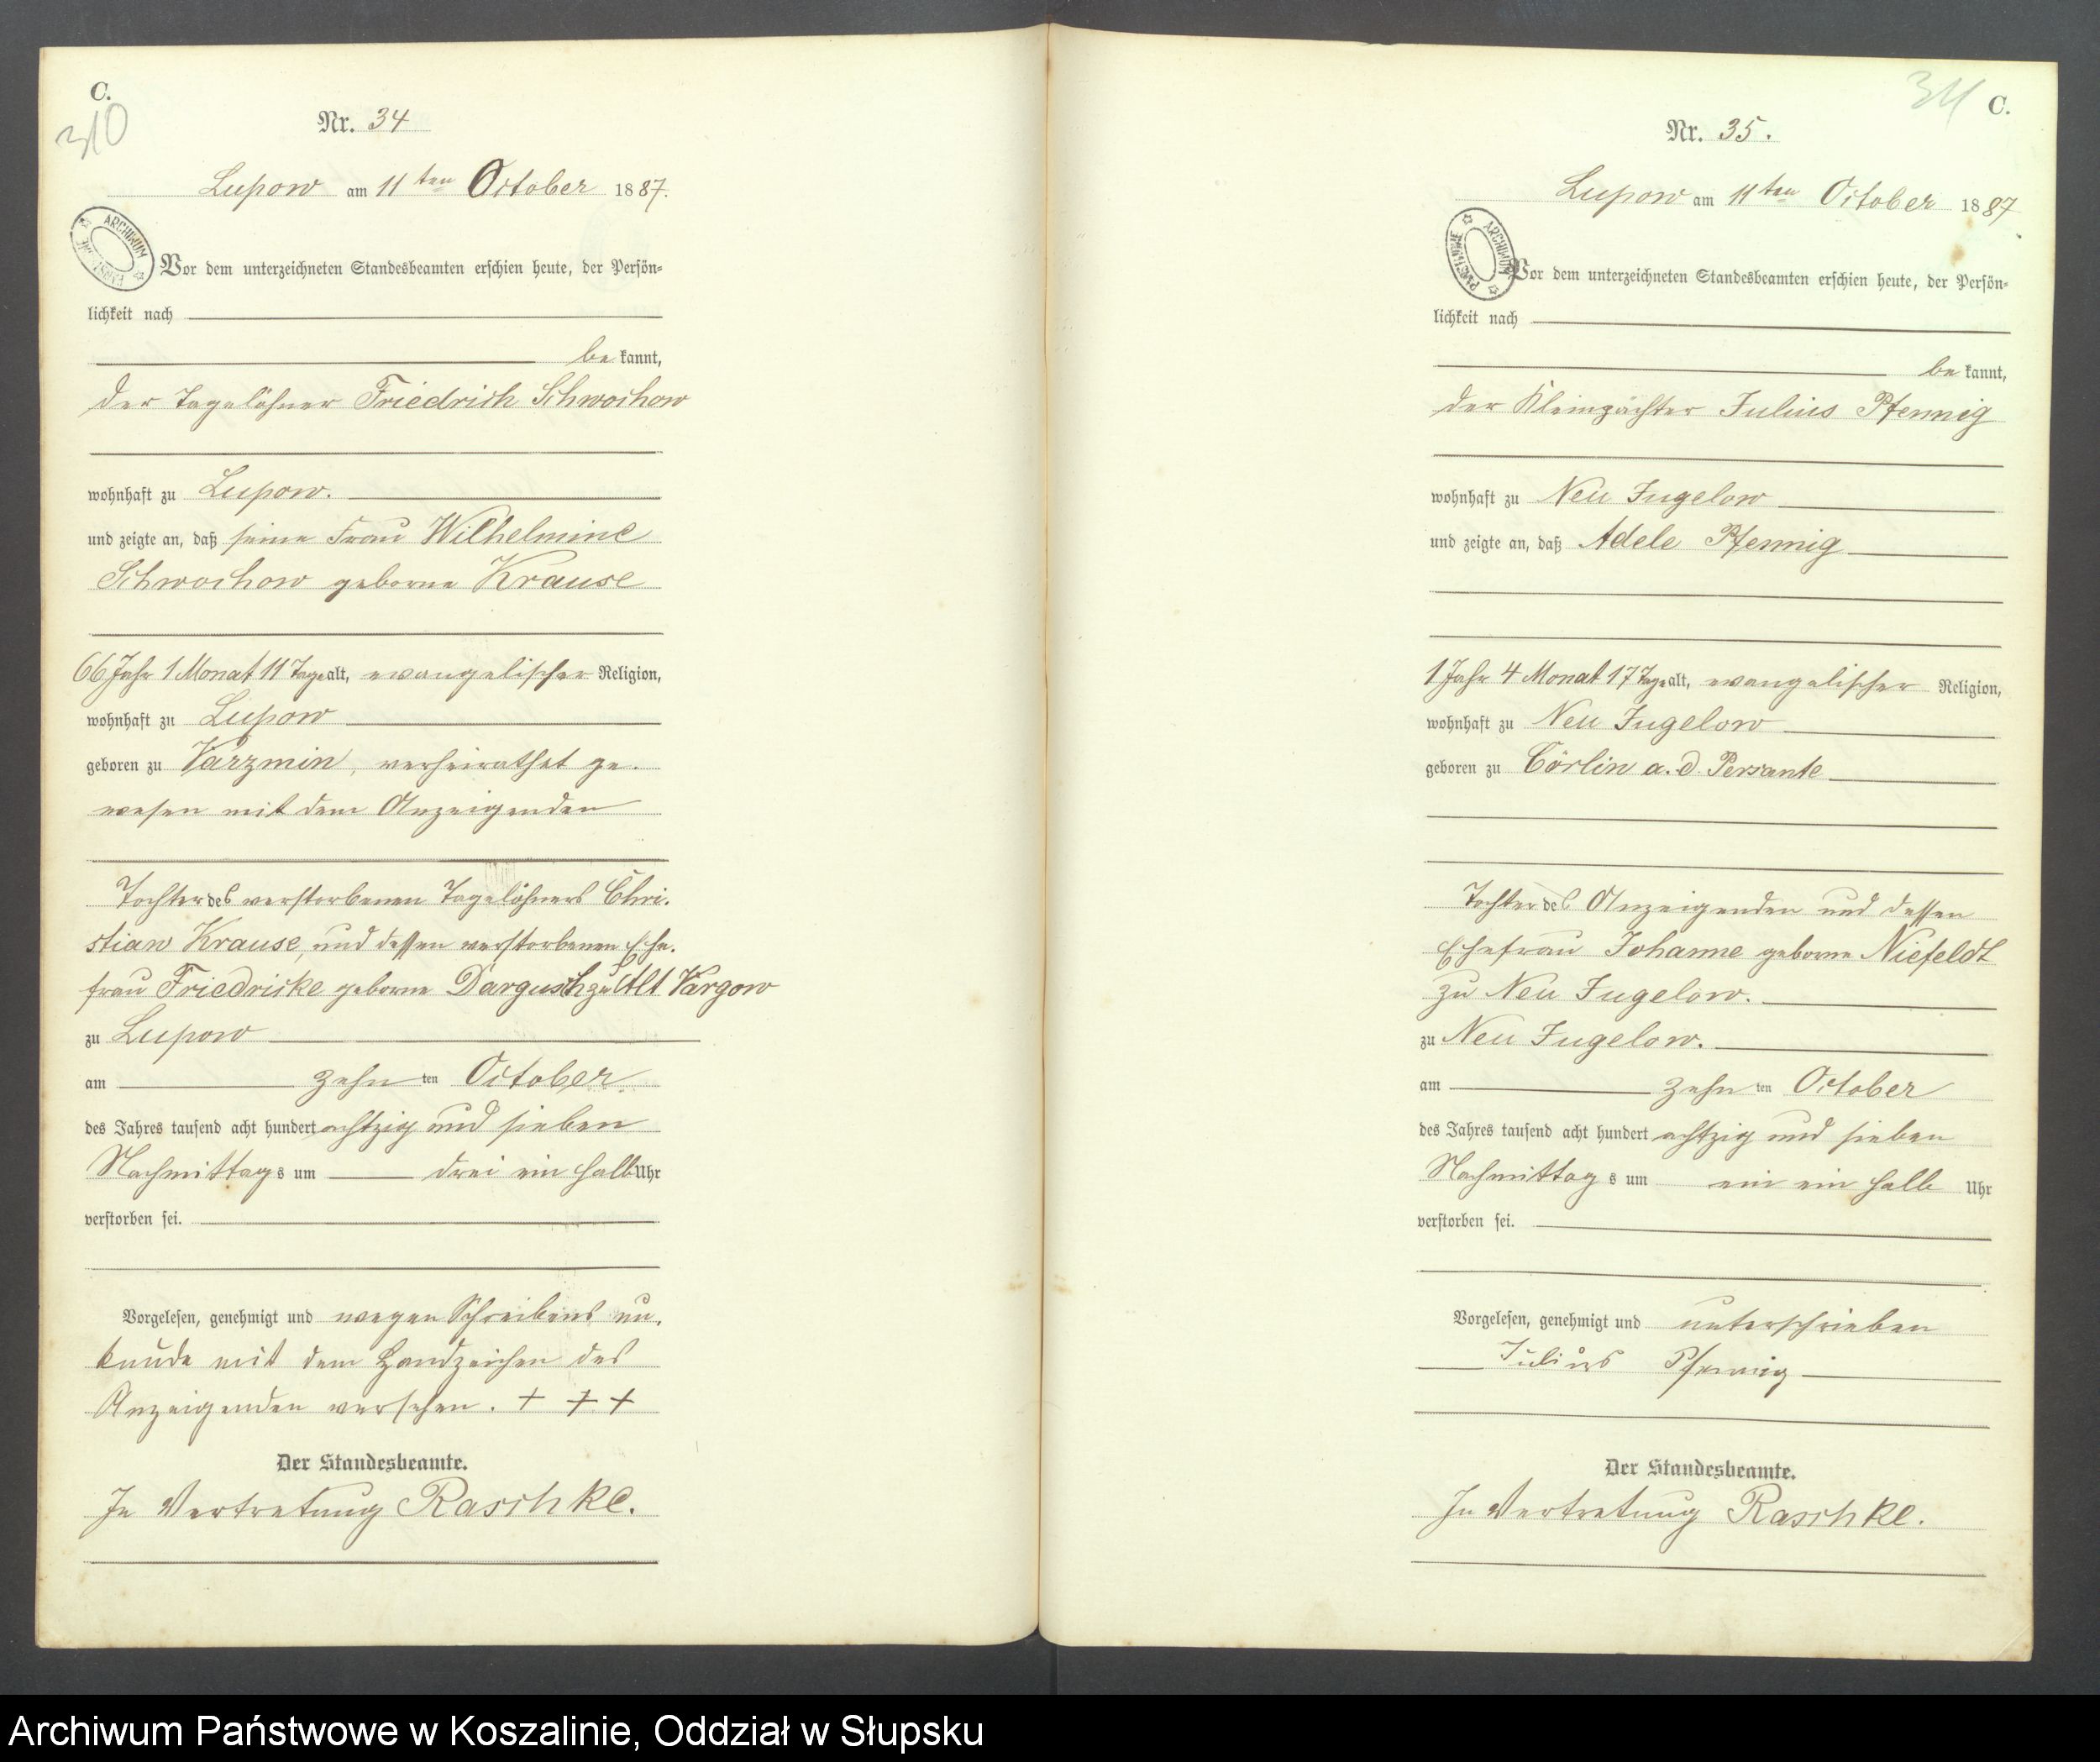 C.
310
Nr. 34
Lupow am 11ten October 1887.
ARCHIWUM
Vor dem unterzeichneten Standesbeamten erschien heute, der Persön-
lichkeit nach
be kannt,
der Tagelöhner Friedrich Schwochow
wohnhaft zu Lupow.
und zeigte an, daß seine Frau Wilhelmine
Schwochow geborne Krause
66 Jahr 1 Monat 11 Tage alt, evangelischer Religion,
wohnhaft zu Lupow
geboren zu Varzmin, verheirathet ge-
wesen mit dem Anzeigenden
Tochter des verstorbenen Tagelöhners Chri-
stian Krause, und dessen verstorbenen Ehe-
frau Friedricke geborne Dargusch zu Alt Vargow
zu Lupow
am zehn ten October
des Jahres tausend acht hundert achtzig und sieben
Nachmittag s um drei ein halb Uhr
verstorben sei.
Vorgelesen, genehmigt und wegen Schreibens un-
kunde mit dem Handzeichen des
Anzeigenden versehen. + + +
Der Standesbeamte.
In Vertretung Raschke.
311 C.
Nr. 35.
Lupow am 11ten October 1887
ARCHIWUM PAŃSTWOWE
Vor dem unterzeichneten Standesbeamten erschien heute, der Persön-
lichkeit nach
be kannt,
der Kleinpächter Julius Pfennig
wohnhaft zu Neu Jugelow
und zeigte an, daß Adele Pfennig
1 Jahr 4 Monat 17 Tage alt, evangelischer Religion,
wohnhaft zu Neu Jugelow
geboren zu Cörlin a. d. Persante
Tochter des Anzeigenden und dessen
Ehefrau Johanne geborne Niefeldt
zu Neu Jugelow.
zu Neu Jugelow.
am zehn ten October
des Jahres tausend acht hundert achtzig und sieben
Nachmittag s um ein ein halb Uhr
verstorben sei.
Vorgelesen, genehmigt und unterschrieben
Julius Pfennig
Der Standesbeamte.
In Vertretung Raschke.
Archiwum Państwowe w Koszalinie, Oddział w Słupsku